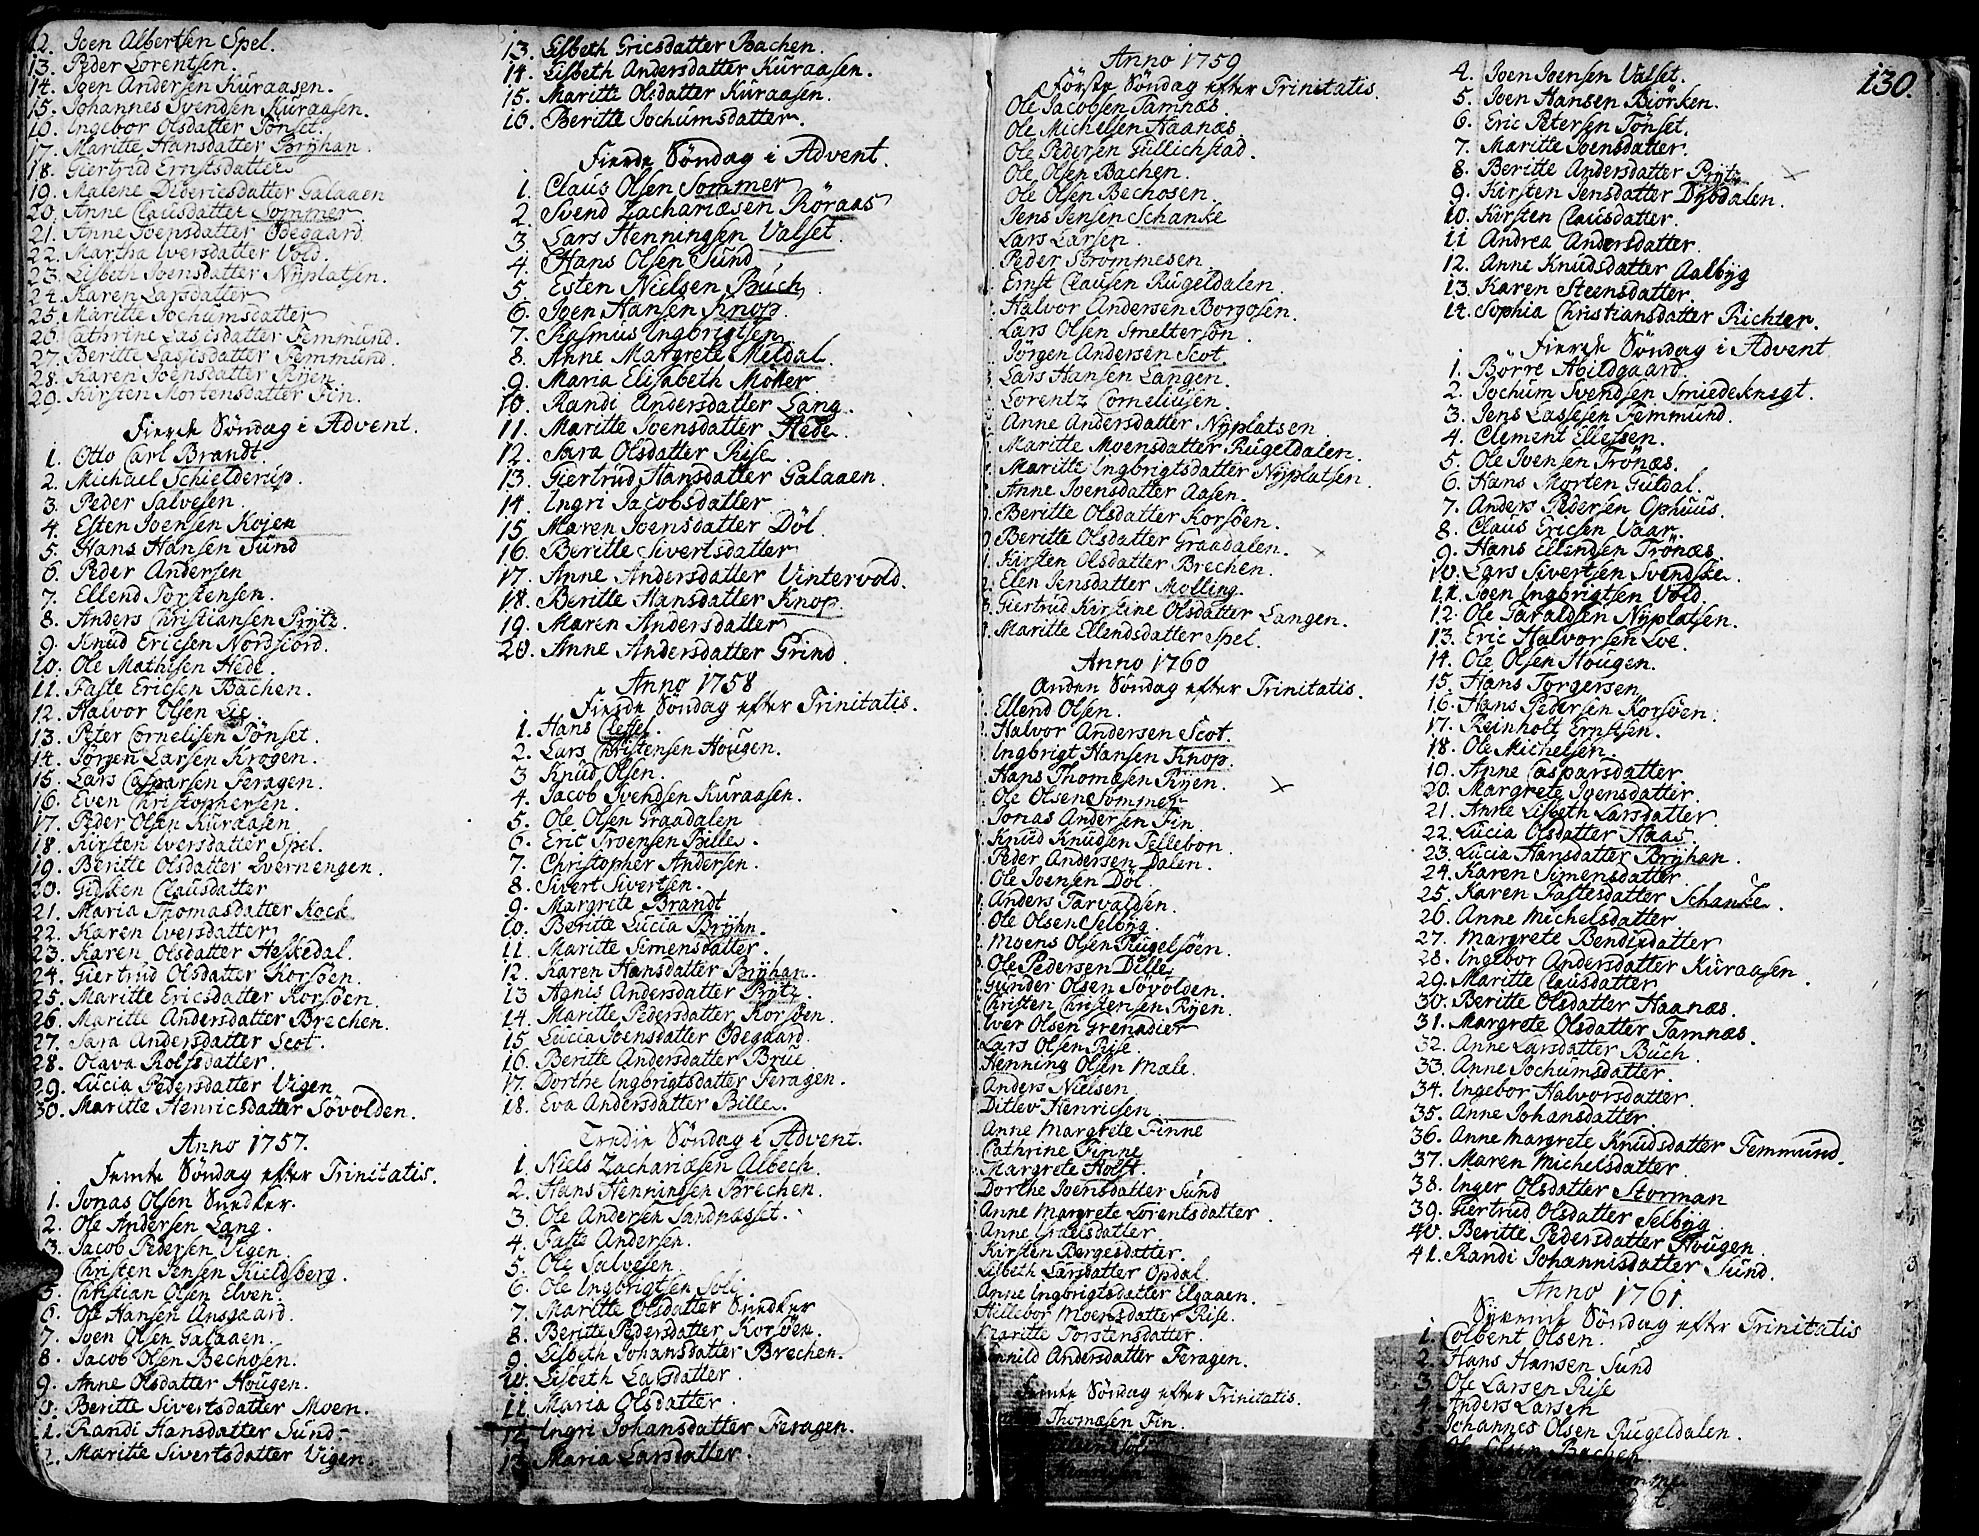 12. Joen Albertsen Spel.
13. Peder Lorentsen.
14. Joen Andersen Kuraasen.
15. Johannes Svendsen Kuraasen.
16. Ingebor Olsdatter Tönset.
17. Maritte Hansdatter Brÿhan.
18. Giertrud Ernstsdatter
19. Malene Didericsdatter Galaaen
20. Anne Clausdatter Sommer.
21. Anne Joensdatter Ödegaard.
22. Martha Iversdatter Vold.
23. Lisbeth Joensdatter Nÿplatsen.
24. Karen Larsdatter
25. Maritte Jochumsdatter
26. Cathrine Lassisdatter Femmund.
27. Beritte Lassisdatter Femmund.
28. Karen Joensdatter Rÿen.
29. Kirsten Mortensdatter Fin.
Fierde Söndag i Advent.
1. Otto Carl Brandt.
2. Michael Schielderup.
3. Peder Salvesen
4. Esten Joensen Kojen
5. Hans Hansen Sund
6. Peder Andersen
7. Ellend Torstensen.
8. Anders Christiansen Prÿtz.
9. Knud Ericsen Nordfiord.
10. Ole Mathisen Hede
11. Faste Ericsen Bachen.
12. Halvor Olsen Lie
13. Peter Cornelisen Tönset.
14. Jörgen Larsen Krogen.
15. Lars Casparsen Feragen.
16. Even Christophersen.
17. Peder Olsen Kuraasen
18. Kirsten Iversdatter Spel.
19. Beritte Olsdatter Evernengen.
20. Gidsken Clausdatter
21. Maria Thomasdatter Kock
22. Karen Iversdatter
23. Karen Olsdatter Heskedal.
24. Giertrud Olsdatter Korsöen.
25. Maritte Ericsdatter Korsöen.
26. Maritte Andersdatter Brechen.
27. Sara Andersdatter Scot.
28. Olava Rolfsdatter.
29. Lucia Pedersdatter Vigen
30. Maritte Henricsdatter Sövolden.
Anno 1757.
Femte Söndag efter Trinitatis.
1. Jonas Olsen Snedker.
2. Ole Andersen Lang.
3. Jacob Pedersen Vigen.
Christen Jensen Kieldsberg.
5. Christian Olsen Elven.
6. Ole Hansen Aasgaard.
7. Joen Olsen Galaaen.
8. Jacob Olsen Bechosen.
9. Anne Olsdatter Hougen.
Beritte Sivertsdatter Moen.
Randi Hansdatter Sund
Maritte Sivertsdatter Vigen.
13. Lisbeth Ericsdatter Bachen.
14. Lisbeth Andersdatter Kuraasen.
15. Maritte Olsdatter Kuraasen.
16. Beritte Jochumsdatter.
Fierde Söndag i Advent.
1. Claus Olsen Sommer
2. Svend Zachariæsen Röraas
3. Lars Henningsen Valset.
4. Hans Olsen Sund
5. Esten Nielsen Buch
6. Joen Hansen Knop.
7. Rasmus Ingbrigtsen
8. Anne Margrete Meldal.
9. Maria Elisabeth Möller
10. Randi Andersdatter Lang.
11. Maritte Joensdatter Hede.
12. Sara Olsdatter Rise
13. Giertrud Hansdatter Galaaen.
14. Ingri Jacobsdatter
15. Maren Joensdatter Döl
16. Beritte Sivertsdatter
17. Anne Andersdatter Vintervold.
18. Beritte Hansdatter Knop.
19. Maren Andersdatter
20. Anne Andersdatter Grind.
Anno 1758
Fierde Söndag efter Trinitatis.
1. Hans
2. Lars Christensen Hougen.
3 Knud Olsen.
4. Jacob Svendsen Kuraasen.
5. Ole Olsen Graadalen
6. Eric Troensen Bille.
7. Christopher Andersen.
8. Sivert Sivertsen.
9. Margrete Brandt
10. Beritte Lucia Brÿhn.
11. Maritte Simensdatter
12. Karen Hansdatter Brÿhan.
13 Agnis Andersdatter Prÿtz
14. Maritte Pedersdatter Korsöen.
15. Lucia Joensdatter Ödegaard.
16. Beritte Andersdatter Brue
17. Dorthe Ingbrigtsdatter Feragen.
18. Eva Andersdatter Bille.
Tredie Söndag i Advent.
1. Niels Zachariæsen Albech.
2. Hans Henningsen Brechen.
3. Ole Andersen Sandnæsset.
4. Faste Andersen.
5. Ole Salvesen.
6. Ole Ingbrigtsen Soli.
7. Maritte Olsdatter Snedker
8. Beritte Pedersdatter Korsöen.
9. Lisbeth Johansdatter Brechen.
10. Lisbeth Larsdatter.
11. Maria Olsdatter.
12. Ingri Johansdatter Feragen.
13 Maria Larsdatter.
Anno 1759
Förste Söndag efter Trinitatis.
Ole Jacobsen Tamnæs
Ole Michelsen Haanæs
Ole Pedersen Gullichstad.
Ole Olsen Bachen.
Ole Olsen Bechosen.
Jens Jensen Schanke
Lars Larsen.
Peder Strommesen
Ernst Clausen Rugeldalen.
Halvor Andersen Borgosen.
Lars Olsen Smeltersön.
Jörgen Andersen Scot
Lars Hansen Langen.
Lorentz Corneliusen.
Anne Andersdatter Nÿplatsen
Maritte Moensdatter Rugeldalen.
Maritte Ingbrigtsdatter Nÿplatsen.
Anne Joensdatter Aasen.
Beritte Olsdatter Korsöen.
Beritte Olsdatter Graadalen.
Kirsten Olsdatter Brechen.
Elen Jensdatter Molling.
Giertrud Kirstine Olsdatter Langen.
Maritte Ellendsdatter Spel.
Anno 1760
Anden Söndag efter Trinitatis.
Ellend Olsen.
Halvor Andersen Scot.
Ingbrigt Hansen Knop.
Hans Thomæsen Rÿen.
Ole Olsen Sommer
Jonas Andersen Fin
Knud Knudsen Tellebon.
Peder Andersen Dalen.
Ole Joensen Döl
Anders Tarvaldsen.
Ole Olsen Selbÿg.
Moens Olsen Rugelsöen.
Ole Pedersen Dille
Gunder Olsen Sövolden.
Christen Christensen Rÿen.
Iver Olsen Grenadier
Lars Olsen Rise
Henning Olsen Mæle.
Anders Nielsen
Ditlev Henricsen.
Anne Margrete Finne
Cathrine Finne
Margrete Holst.
Dorthe Joensdatter Sund
Anne Margrete Lorentsdatter.
Anne Graelsdatter
Kirsten Børgesdatter.
Lisbeth Larsdatter Opdal
Anne Ingbrigtsdatter Elgaaen.
Hillebor Moensdatter Rise.
Maritte Torstensdatter.
Andersdatter Feragen.
Femte Söndag efter Trinitatis.
Thomæsen Fin.
4. Joen Joensen Valset.
5. Joen Hansen Biörken.
6. Eric Petersen Tönset.
7. Maritte Joensdatter.
8. Beritte Andersdatter Prÿtz
9. Kirsten Jensdatter Dybdalen.
10. Kirsten Clausdatter.
11 Andrea Andersdatter.
12. Anne Knudsdatter Aalbÿg
13. Karen Steensdatter.
14. Sophia Christiansdatter Richter.
Fierde Söndag i Advent
1. Börre Abildgaard.
2. Jochum Svendsen Smiedeknegt.
3. Jens Lassesen Femmund.
4. Clement Ellefsen.
5. Ole Ivensen Trönæs.
6. Hans Morten Guldal.
7. Anders Pedersen Ophuus.
8. Claus Ericsen Vaar.
9. Hans Ellendsen Trönæs.
10. Lars Sivertsen Svendske.
11. Joen Ingbrigtsen Vold.
12. Ole Taraldsen Nÿplatsen.
13. Eric Halvorsen Loe.
14. Ole Olsen Hougen.
15. Hans Torgersen
16. Hans Pedersen Korsöen.
17. Reinholt Ernstsen.
18. Ole Michelsen.
19. Anne Casparsdatter
20. Margrete Joensdatter.
21. Anne Lisbeth Larsdatter.
22. Lucia Olsdatter Haas
23. Lucia Hansdatter Brÿhan.
24. Karen Simensdatter
25. Karen Fastesdatter Schanke.
26. Anne Michelsdatter
27. Margrete Bendixdatter
28. Ingebor Andersdatter Kuraasen.
29. Maritte Clausdatter
30. Beritte Olsdatter Haanæs.
31. Margrete Olsdatter Tamnæs.
32. Anne Larsdatter Buch.
33. Anne Jochumsdatter.
34. Ingebor Halvorsdatter.
35. Anne Johansdatter.
36. Anne Margrete Knudsdatter Femmund.
37. Maren Michelsdatter
38. Inger Olsdatter Storman
39. Giertrud Olsdatter Selbÿg
40. Beritte Pedersdatter Hougen
41. Randi Johannisdatter Sund.
Anno 1761.
Söndag efter Trinitatis
1. Colbent Olsen.
2. Hans Hansen Sund
3. Ole Larsen Rise
4. Anders Larsen
Johannes Olsen Rugeldalen.
Bachen
130.